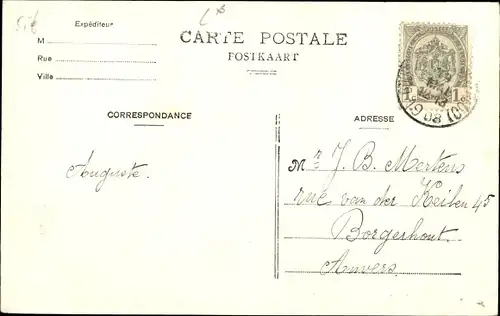 Expéditeur
M
Rue
Ville
CARTE POSTALE
POSTKAART
CORRESPONDANCE
ADRESSE
Auguste.
Mr J. B. Mertens
rue van der Keilen 45
Borgerhout.
Anvers.
1 1
08